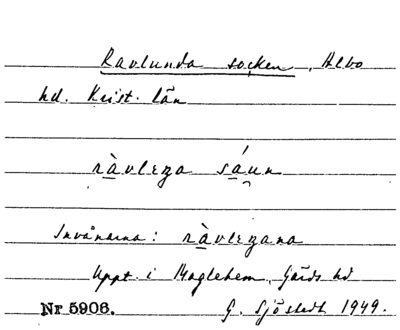 Ravlunda socken, Albo
hd. Krist. län
ràvlɛza
Invånarna: ràvlɛzana
Uppt. i Maglehem, Gärds hd
Nr 5906. G. Sjöstedt 1949.